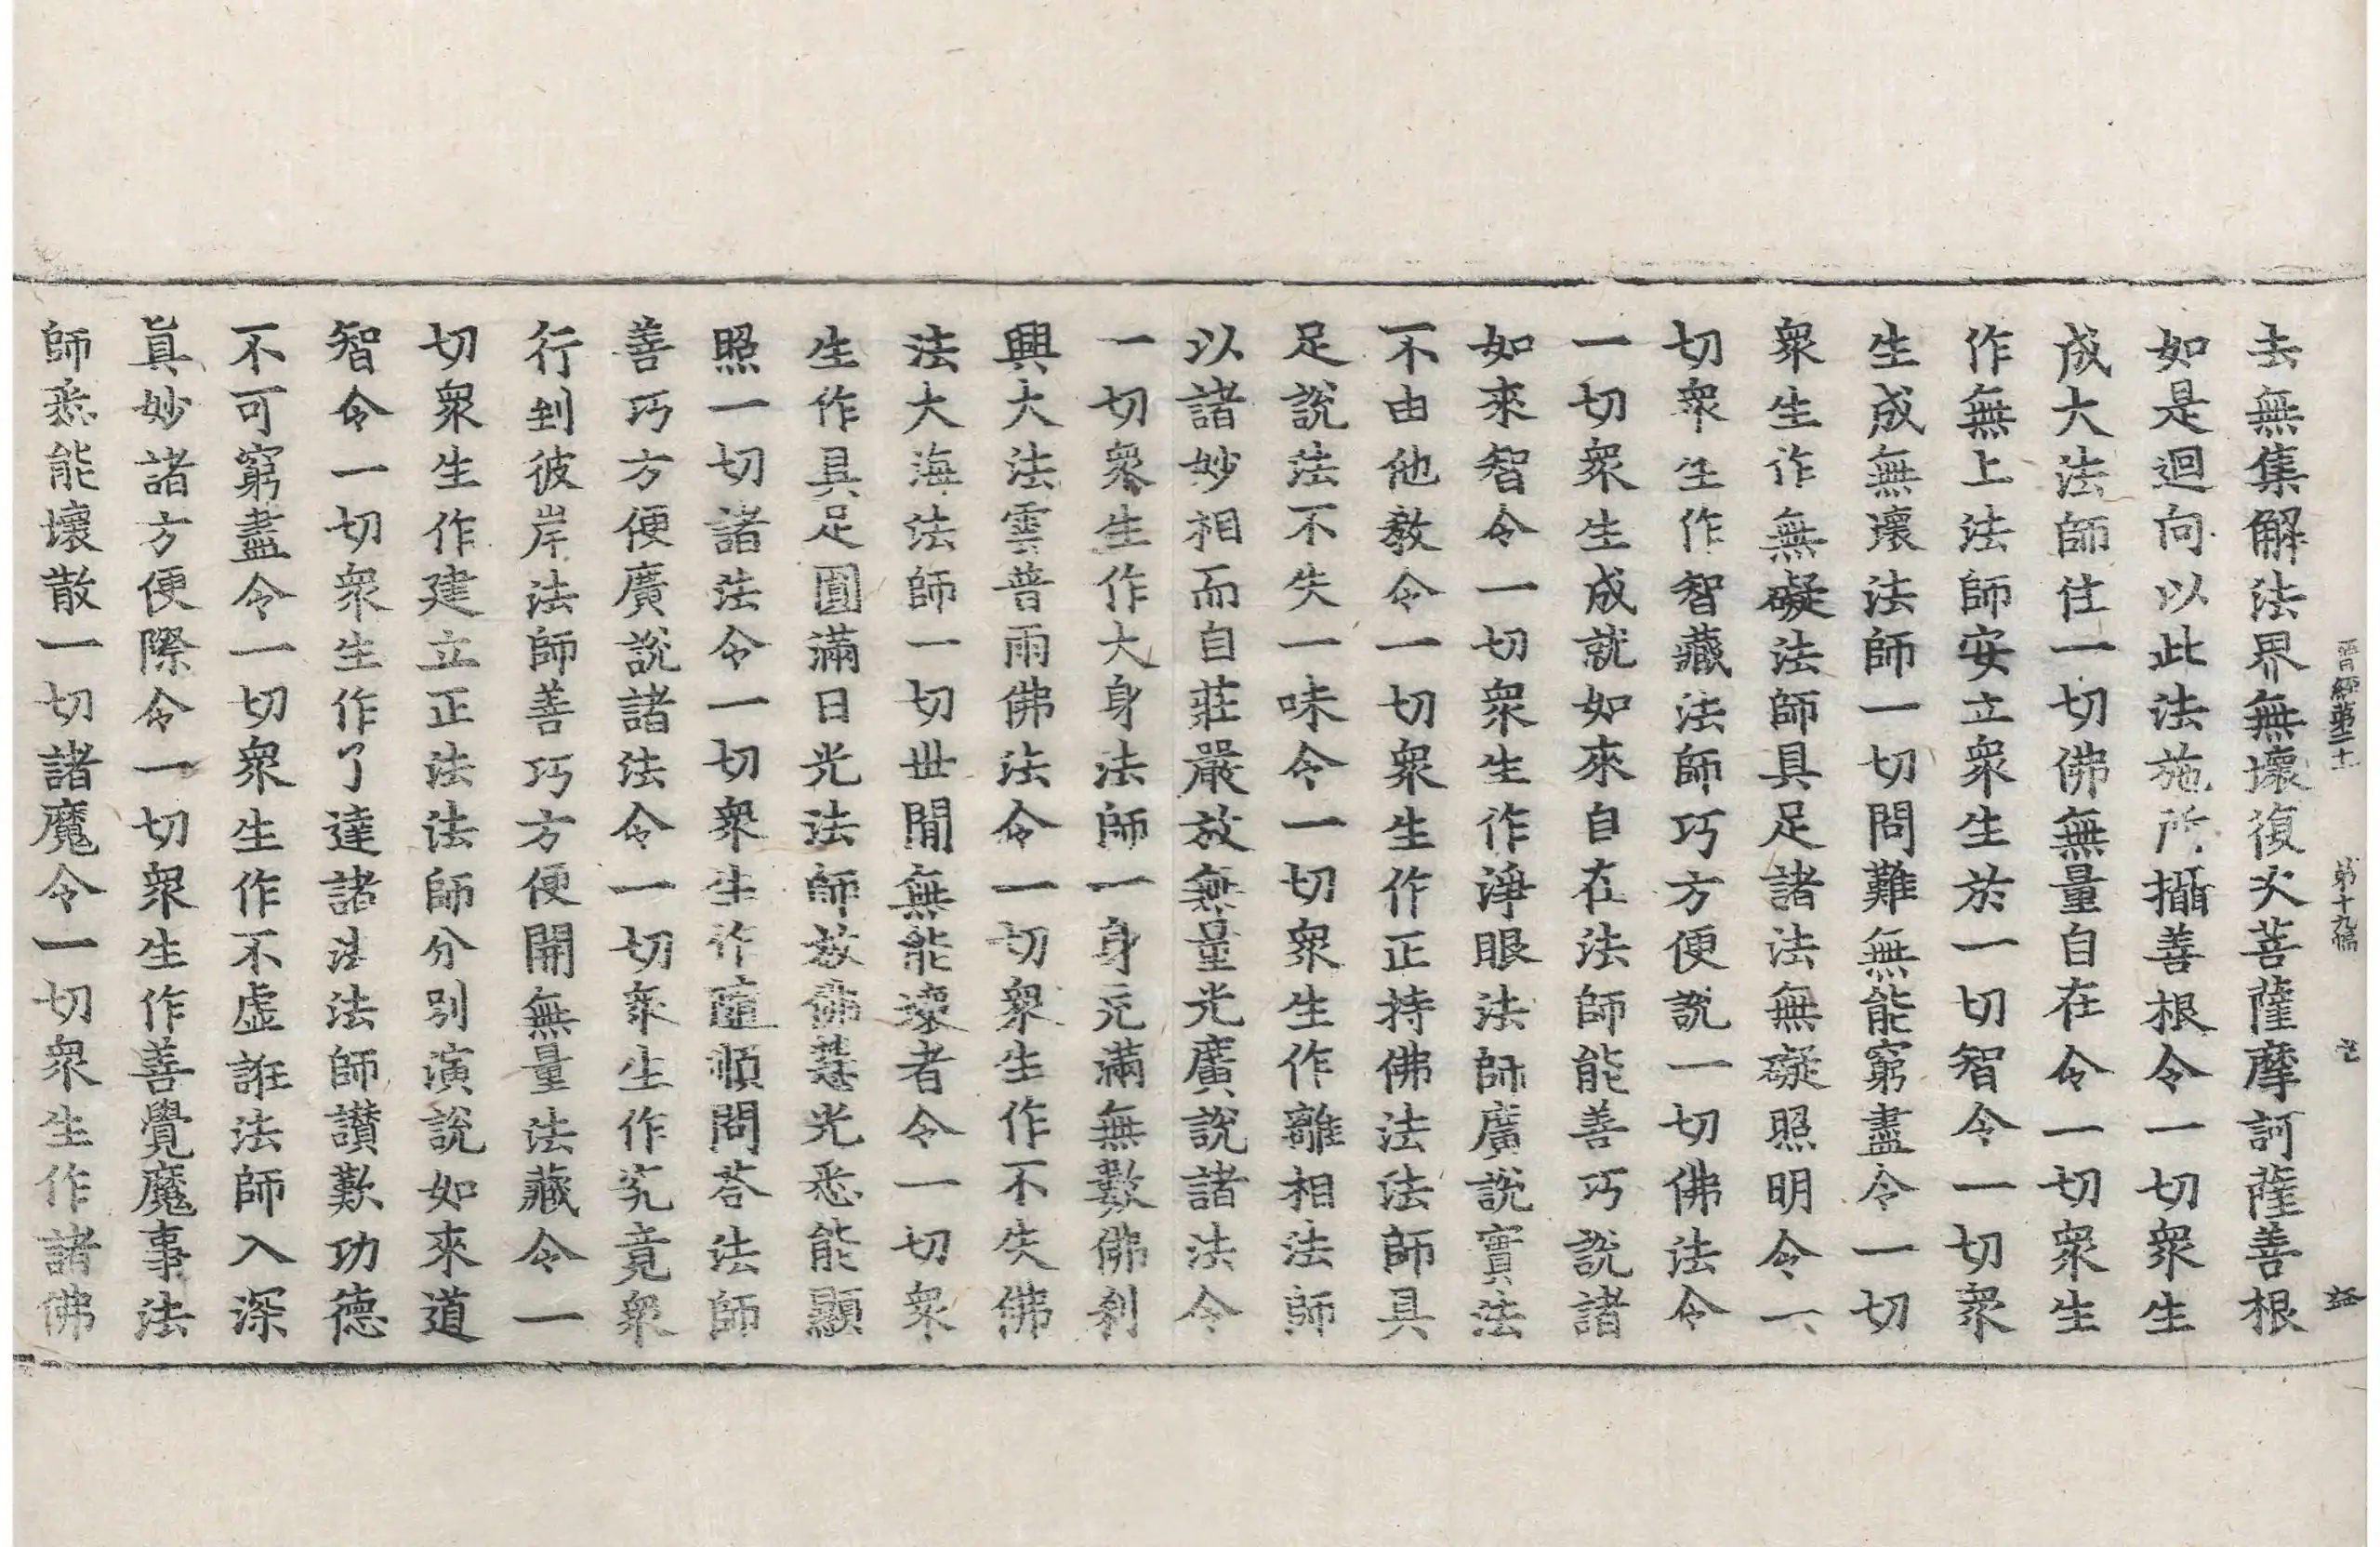 晋經第二十 第十九幅
去無集解法界無壞復次菩薩摩訶薩善根
如是迴向以此法施所攝善根令一切衆生
成大法師住一切佛無量自在令一切衆生
作無上法師安立衆生於一切智令一切衆
生成無壞法師一切問難無能窮盡令一切
衆生作無礙法師具足諸法無礙照明令一
切衆生作智藏法師巧方便說一切佛法令
一切衆生成就如來自在法師能善巧說諸
如來智令一切衆生作淨眼法師廣說實法
不由他教令一切衆生作正持佛法法師具
足說法不失一味令一切衆生作離相法師
以諸妙相而自莊嚴放無量光廣說諸法令
一切衆生作大身法師一身充滿無數佛刹
興大法雲普雨佛法令一切衆生作不失佛
法大海法師一切世間無能壞者令一切衆
生作具足圓滿日光法師放佛慧光悉能顯
照一切諸法令一切衆生作隨順問荅法師
善巧方便廣說諸法令一切衆生作究竟衆
行到彼岸法師善巧方便開無量法藏令一
切衆生作建立正法法師分別演說如來道
智令一切衆生作了達諸法法師讃歎功德
不可窮盡令一切衆生作不虛誑法師入深
眞妙諸方便際令一切衆生作善覺魔事法
師悉能壞散一切諸魔令一切衆生作諸佛